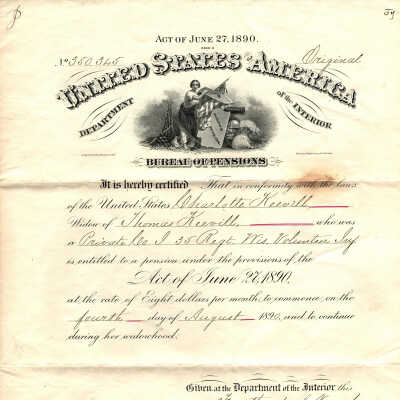 Act of June 27, 1890.
No 350,345
Original
United States of America
Department of the Interior
Bureau of Pensions
It is hereby certified That in conformity with the laws
of the United States Charlotte Keevill
Widow of Thomas Keevill, who was
a Private Co. I 35 Regt. Wis. Volunteer Inf
is entitled to a pension under the provisions of the
Act of June 27, 1890.
at the rate of Eight dollars per month, to commence on the
fourth day of August 1890, and to continue
during her widowhood.
Given at the Department of the Interior this